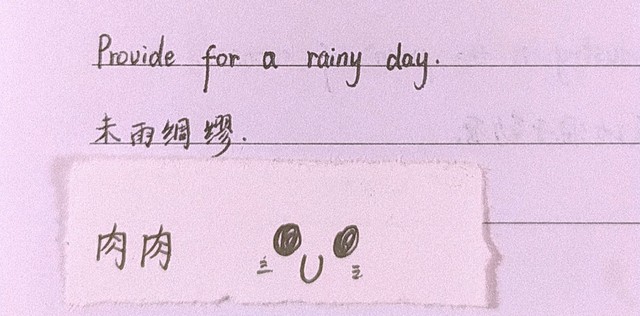 Provide for a rainy day.
未雨绸缪.
肉肉